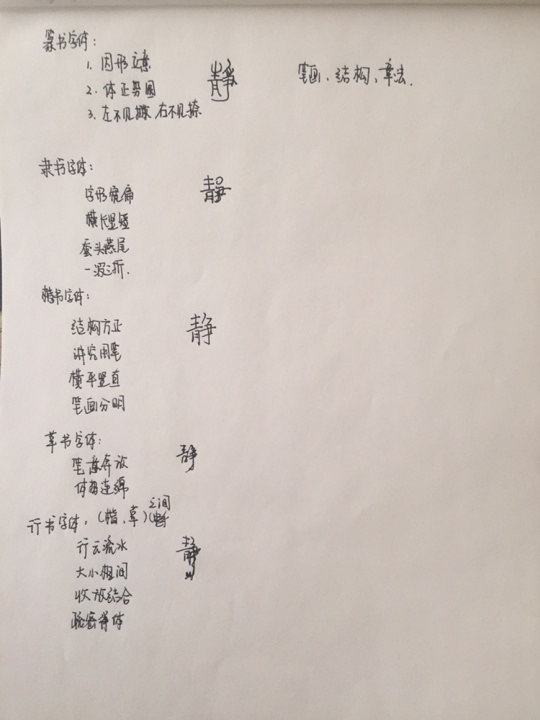 篆书字体:
1. 因形立意 静 笔画、结构、章法.
2. 体正势圆
3. 左不见撇 右不见捺
隶书字体:
字形宽扁 静
横长竖短
蚕头燕尾
一波三折.
楷书字体:
结构方正 静
讲究用笔
横平竖直
笔画分明
草书字体:
笔意奔放 静
体势连绵
行书字体, (楷、草) 之间
行云流水 静
大小相间
收放结合
疏密得体